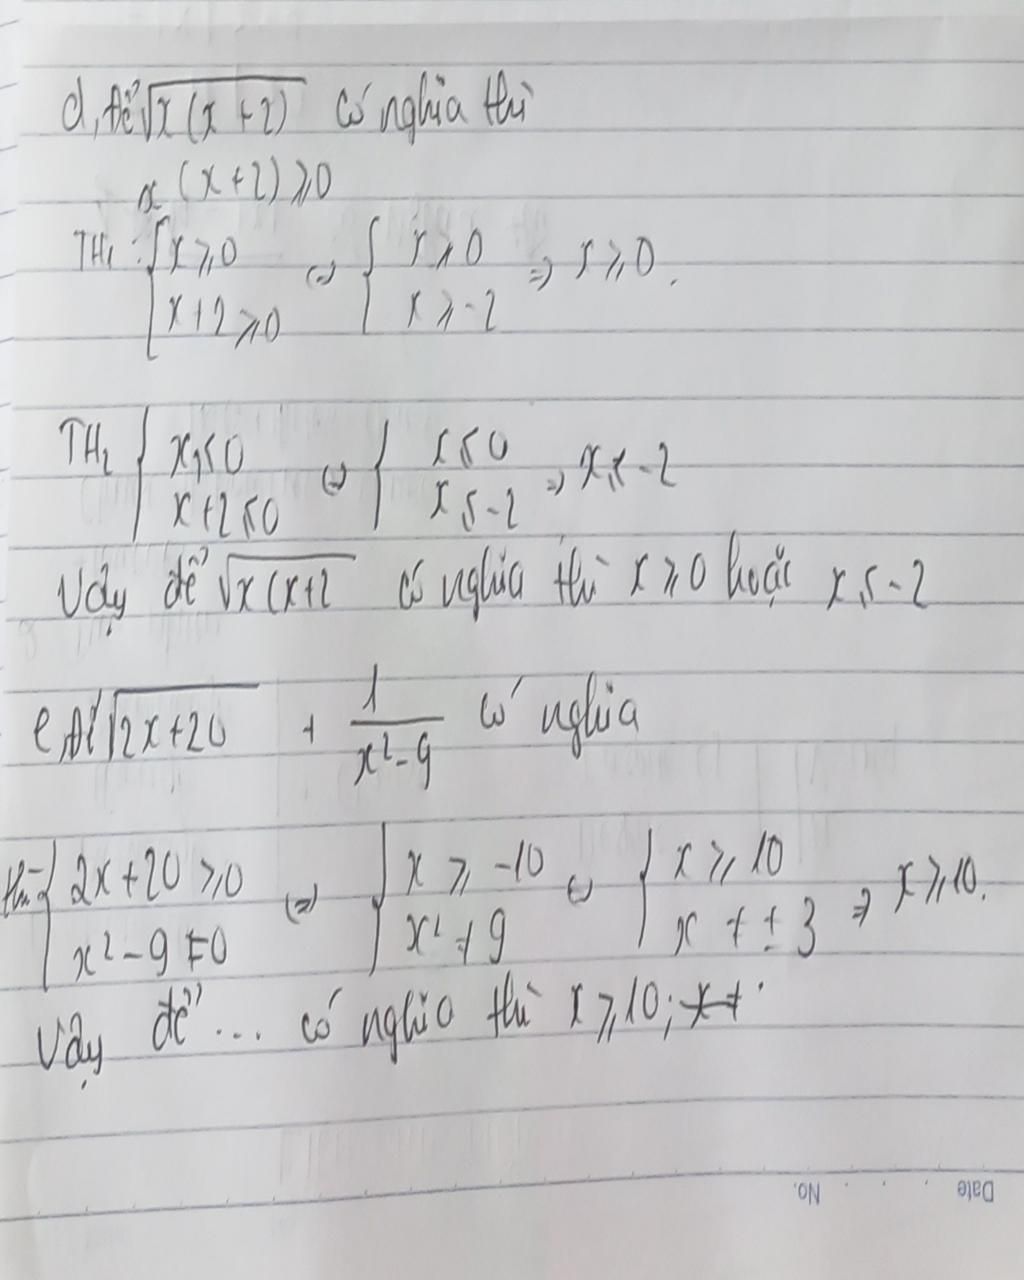 d, Để √x(x+2) có nghĩa thì
x(x+2) ⩾ 0
TH1: { x ⩾ 0 ; x+2 ⩾ 0 (=) { x ⩾ 0 ; x ⩾ -2 => x ⩾ 0.
TH2 { x ⩽ 0 ; x+2 ⩽ 0 (=) { x ⩽ 0 ; x ⩽ -2 => x ⩽ -2
Vậy để √x(x+2 có nghĩa thì x ⩾ 0 hoặc x ⩽ -2
e, Để √2x+20 + 1/(x²-9) có nghĩa
thì { 2x+20 ⩾ 0 ; x²-9 ≠ 0 (=) { x ⩾ -10 ; x² ≠ 9 (=) { x ⩾ 10 ; x ≠ ±3 => x ⩾ 10.
Vậy để ... có nghĩa thì x ⩾ 10;
Date No.